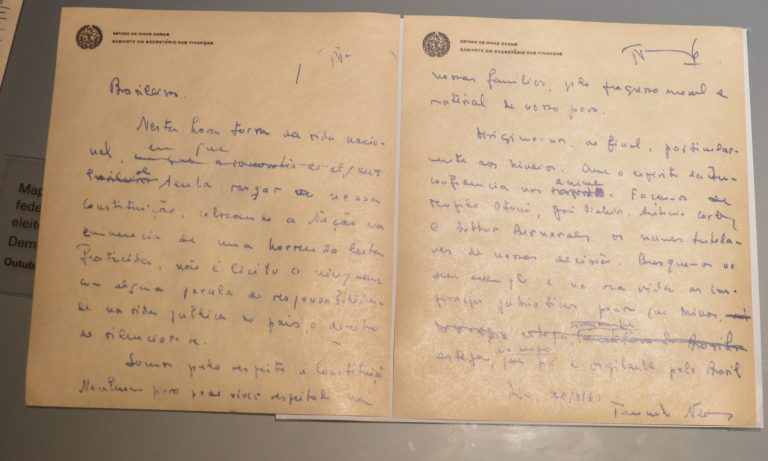 Map
fede
eleito
Dem
Outub
ESTADO DE MINAS GERAIS
GABINETE DO SECRETÁRIO DAS FINANÇAS
Brasileiros.
Nesta hora turva da vida nacio-
nal, em que
se tenta rasgar a nossa
Constituição, colocando a Nação na
eminencia de uma horrenda luta
fratricida, não é licito a ninguem
com alguma parcela de responsabilida-
de na vida publica do país, o direito
de silenciar-se.
Somos pelo respeito à Constituição.
Nenhum povo pode viver respeitado na
ESTADO DE MINAS GERAIS
GABINETE DO SECRETÁRIO DAS FINANÇAS
nossas familias, pelo progresso moral e
material de nosso povo.
Dirigimo-nos, ao final, particular-
mente aos mineiros. Que o espirito da In-
confidencia nos anime. Façamos de
Teofilo Otoni, João Pinheiro, Antônio Carlos
e Arthur Bernardes os numes tutela-
res de nossas decisões. Busquemos no
seu exemplo e na sua vida as ins-
pirações patrioticas para que Minas,
esteja, de pé e vigilante pelo Brasil